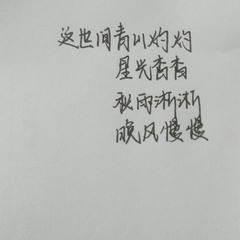 这世间青山灼灼
星光杳杳
秋雨淅淅
晚风慢慢